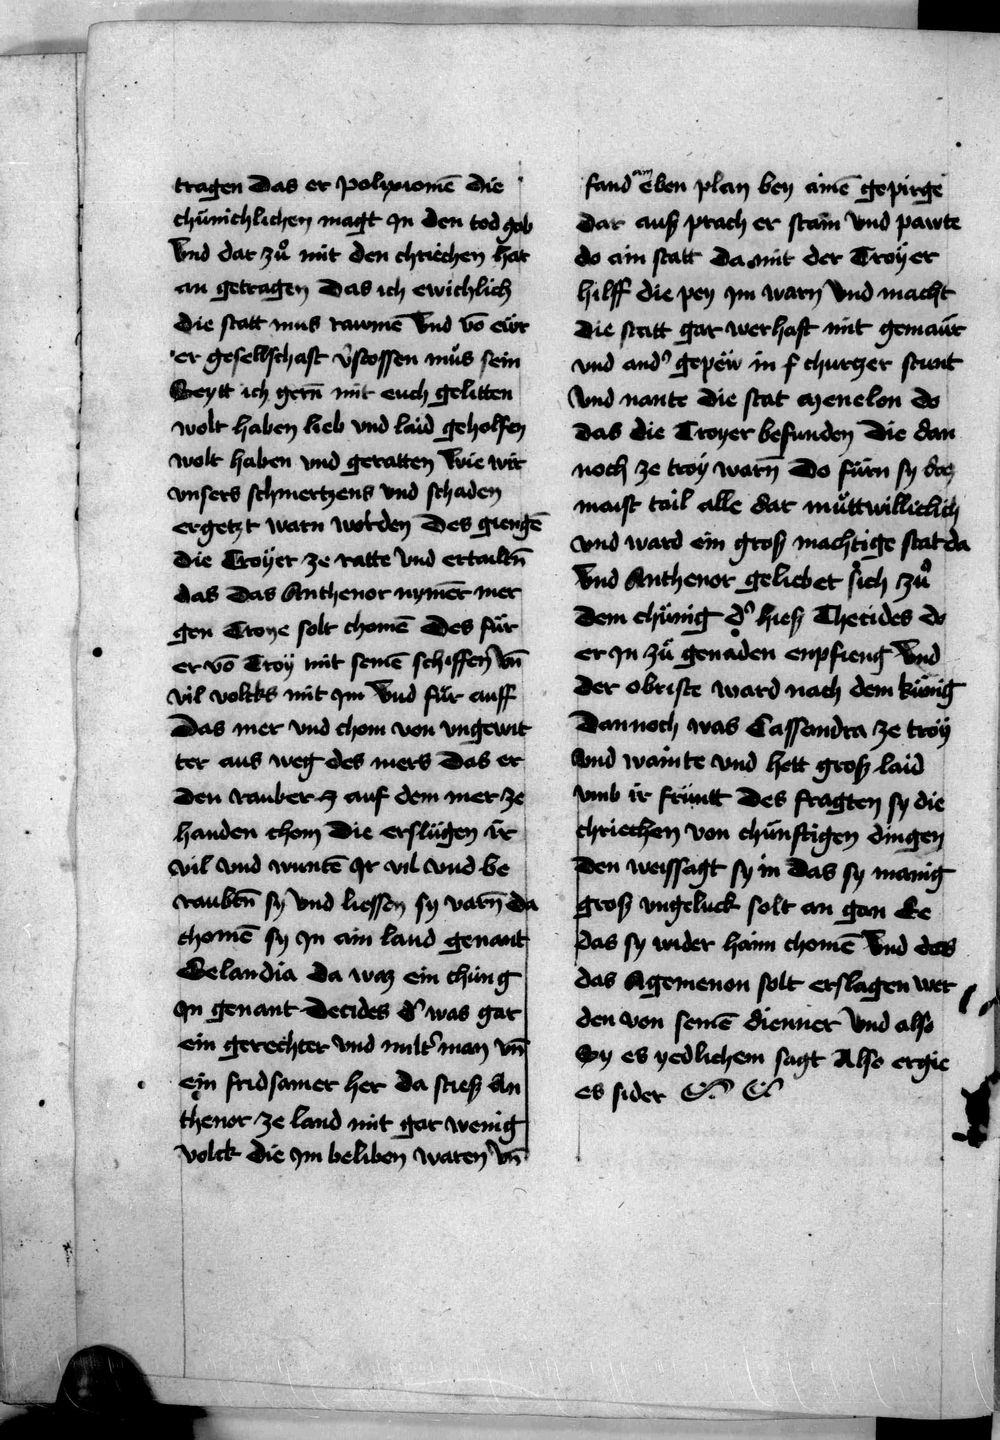 tragen Das er polixionē die
chünichlichen magt jn den tod gab
Vnd dar zů mit den chriechen hat
an getragen Das ich ewichlich
die statt mus rawmē Vnd vō ewr
er gesellschaft v̓stossen můs sein
Seytt ich gern̄ mit euch gelitten
wolt haben lieb vnd laid geholfen
wolt haben vnd geratten Wie wir
vnsers schmertzens vnd schaden
ergetzt warn worden Des giengē
die Troÿer ze ratte Vnd ertailtn̄
das Das Anthenor nymer mer
gen Troye solt chomē Des für
er vō Troÿ mit seinē schiffen vn̄
vil volcks mit jm Vnd für auff
Das mer vnd chom von vngewit
ter aus weg des mers Das er
den rauber auf dem mer ze
handen chom Die erslügen ir
vil vnd wuntē Ir vil vnd be
raubtn̄ sy Vnd liessen sy varn̄ Da
chomē sy jn ain land genant
Gelandia Da waz ein chüng
jn genant Decides d̓ was gar
ein gerechter vnd milt̓ man vn̄
ein fridsamer her Da stiesz An
thenor ze land mit gar wenig
volck die jm beliben waren vn̄
fand am eben plan bey ainē gepirge
dar ausz prach er stain Vnd pawte
do ain statt Da mit der Troÿer
hilff die pey jm warn Vnd macht
die statt gar werhaft mit gemaür
vnd and̓ gepëw in churtzer stunt
Vnd nante die stat Menelon do
das die Troyer befunden Die dan
noch ze troÿ warn̄ Do fürn sy daz
maist tail alle dar müttwillichlich
vnd ward ein grosz machtige stat da
Vnd Anthenor geliebet sich zů
dem chünig d̓ hiesz Thecides do
er jn zů genaden enpfieng Vnd
der obriste ward nach dem künig
Dannoch was Cassandra ze troÿ
Vnd wainte vnd hett grosz laid
vmb ir früntt Des fragten sy die
chriechen von chünftigen dingen
den weissagt sy in Das sy manig
grosz vngeluck solt an gan Ee
das sy wider haim chomē Vnd das
das Agemenon solt erslagen wer
den von seinē dienner Vnd also
Sy es yedlichem sagt Also ergie
es sider